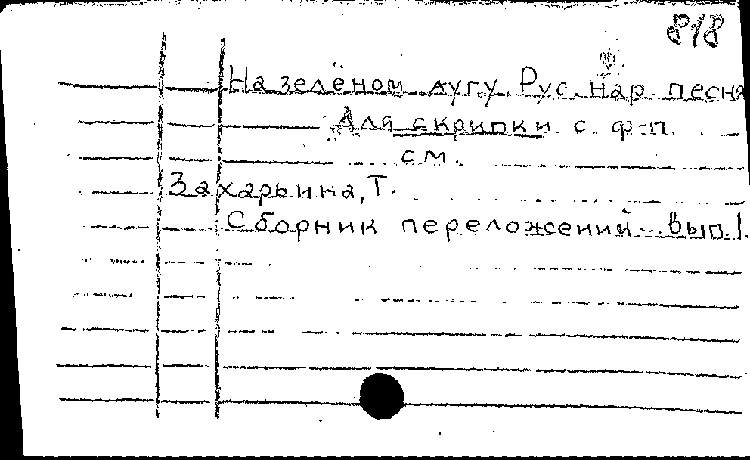 818
На зелёном лугу. Рус. нар. песня
Для скрипки с ф-п.
см.
Захарьина, Т.
Сборник переложений. Вып. 1.